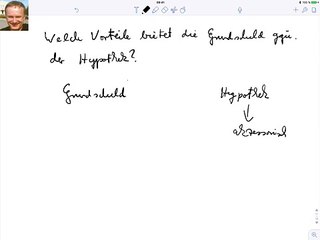 Welche Vorteile bietet die Grundschuld ggü.
der Hypothek?
Grundschuld Hypothek
akzessorisch